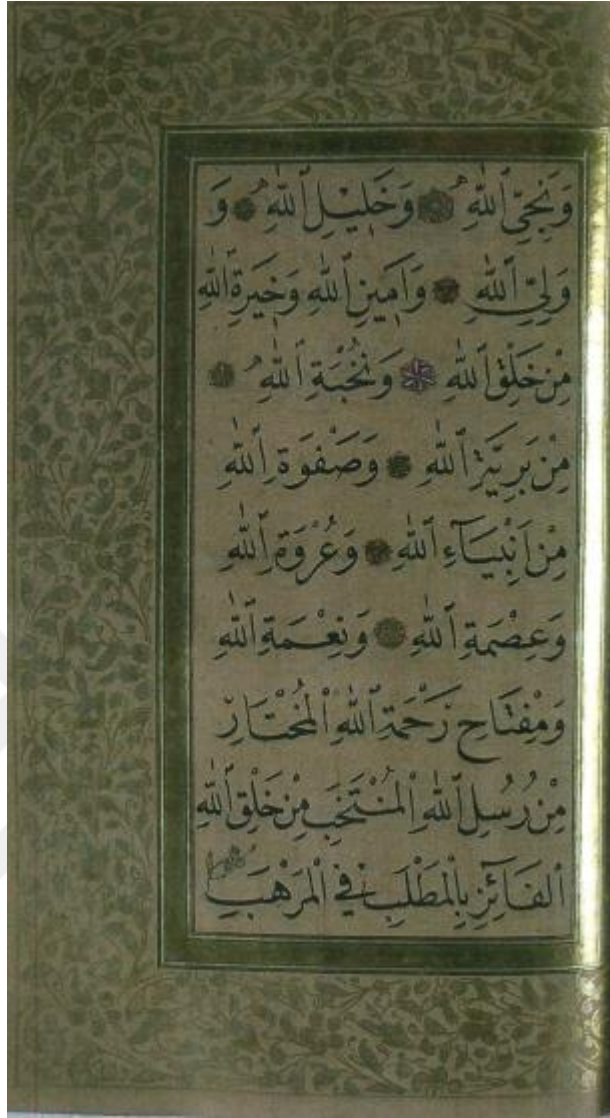 وَنَجِيِّ ٱللّٰهِ وَخَلِيلِ ٱللّٰهِ وَ
وَلِيِّ ٱللّٰهِ وَاَمِينِ ٱللّٰهِ وَخِيَرَةِ ٱللّٰهِ
مِنْ خَلْقِ ٱللّٰهِ وَنُخْبَةِ ٱللّٰهِ
مِنْ بَرِيَّةِ ٱللّٰهِ وَصَفْوَةِ ٱللّٰهِ
مِنْ اَنْبِيَآءِ ٱللّٰهِ وَعُرْوَةِ ٱللّٰهِ
وَعِصْمَةِ ٱللّٰهِ وَنِعْمَةِ ٱللّٰهِ
وَمِفْتَاحِ رَحْمَةِ ٱللّٰهِ ٱلْمُخْتَارِ
مِنْ رُسُلِ ٱللّٰهِ ٱلْمُنْتَخَبِ مِنْ خَلْقِ ٱللّٰهِ
ٱلْفَآئِزِ بِالْمَطْلَبِ فِي الْمَرْهَبِ